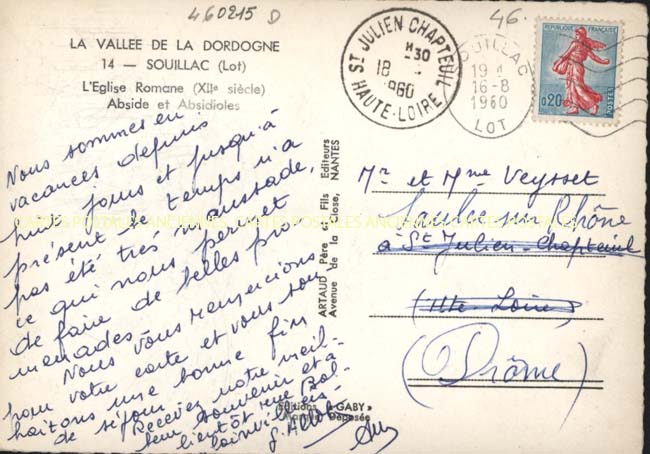 460215 D
46.
LA VALLEE DE LA DORDOGNE
14 — SOUILLAC (Lot)
L'Eglise Romane (XIIe siècle)
Abside et Absidioles
Nous sommes en
vacances depuis
huit jours et jusqu'à
présent le temps n'a
pas été très maussade,
ce qui nous permet
de faire de belles pro-
menades.
Nous vous remercions
pour votre carte et vous sou
haitons une bonne fin
de séjour.
Recevez notre meil-
leur souvenir et à
bientôt
ST JULIEN CHAPTEUIL
18
1960
HAUTE-LOIRE
SOUILLAC
19
16-8
1960
LOT
REPUBLIQUE FRANÇAISE
0,20
POSTES
ARTAUD Père et Fils Editeurs
Avenue de la Close, NANTES
Mr et Mme Veysset
Saulce sur Rhône
à St Julien-Chapteuil
(Hte Loire)
(Drôme)
Editions «GABY»
Marque Déposée
CARTES POSTALES ANCIENNES